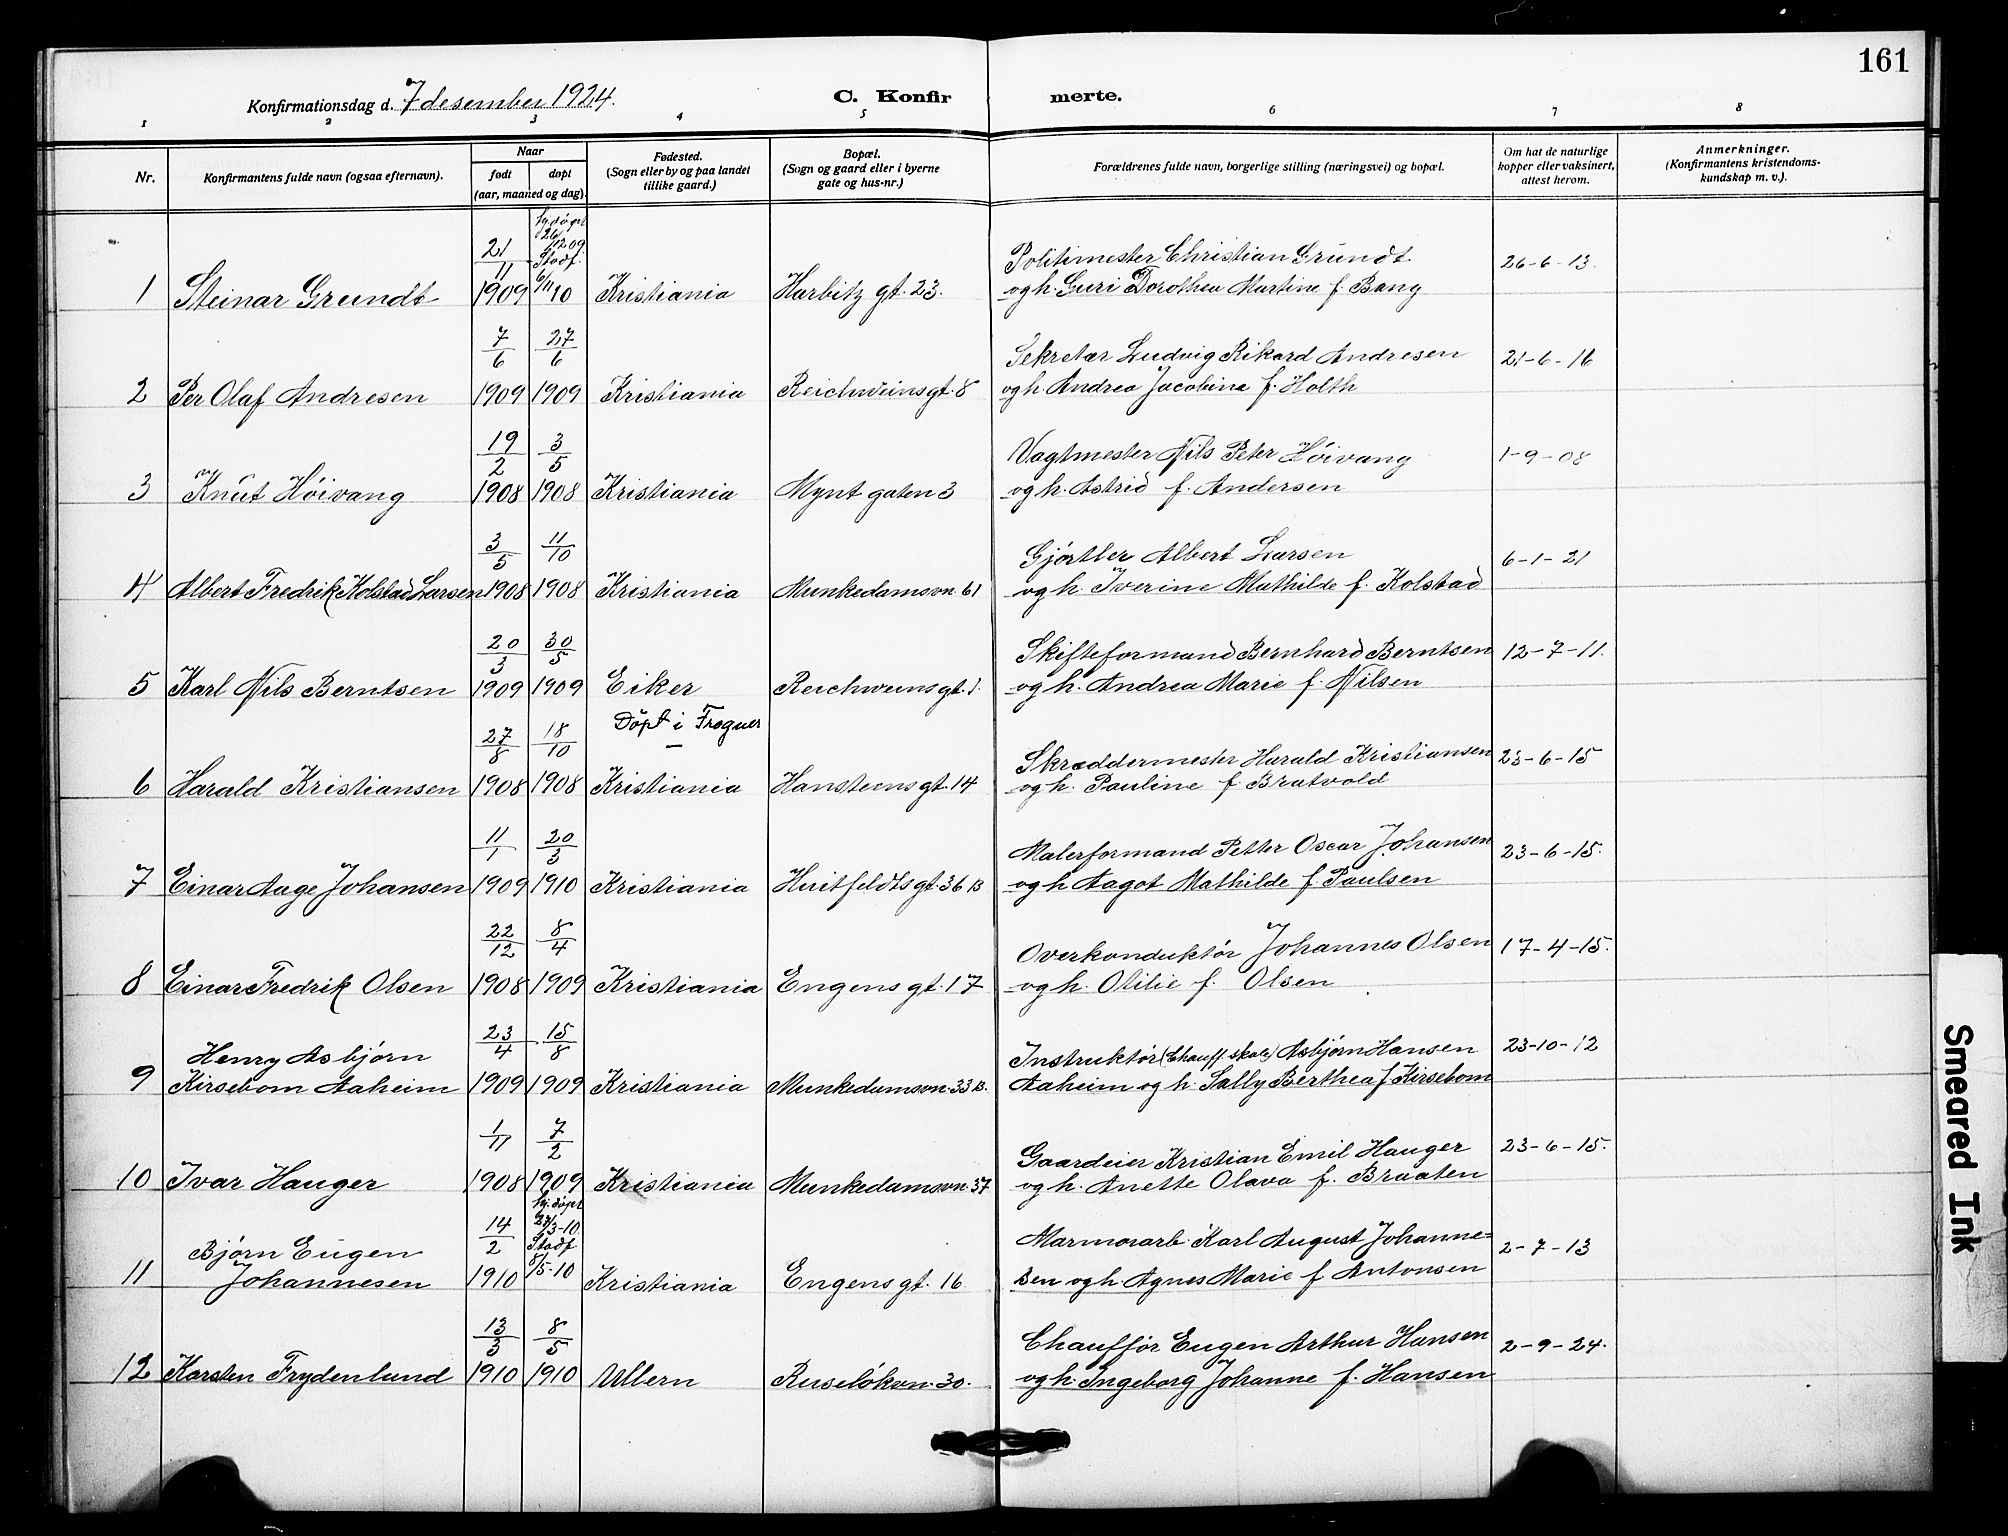 161
Konfirmationsdag d. 7 desember 1924.
C. Konfirmerte.
1 2 3 4 5 6 7 8
Nr.
Konfirmantens fulde navn (ogsaa efternavn).
Naar
født
døpt
(aar, maaned og dag).
Fødested.
(Sogn eller by og paa landet
tillike gaard.)
Bopæl.
(Sogn og gaard eller i byerne
gate og hus-nr.)
Forældrenes fulde navn, borgerlige stilling (næringsvei) og bopæl.
Om hat de naturlige
kopper eller vaksinert,
attest herom.
Anmerkninger.
(Konfirmantens kristendoms-
kundskap m. v.).
hj. døpt
26/12 09
21/11 Stadf.
Politimester Christian Grundt
26-6-13.
1 Steinar Grundt 1909 6/11 10 Kristiania Harbitz gt. 23. og h. Guri Dorothea Martine f. Bang
7/6 27/6 Sekretær Ludvig Rikard Andresen 21-6-16
2 Per Olaf Andresen 1909 1909 Kristiania Reichweinsgt. 8 og h. Andrea Jacobine f. Holth
19/2 3/5 Vagtmester Nils Peter Høivang 1-9-08
3 Knut Høivang 1908 1908 Kristiania Mynt gaten 3 og h. Astrid f. Andersen
3/5 11/10 Gjørtler Albert Larsen 6-1-21
4 Albert Fredrik Kolstad Larsen 1908 1908 Kristiania Munkedamsvn. 61 og h. Iverine Mathilde f. Kolstad
20/3 30/5 Skifteformand Bernhard Berntsen 12-7-11.
5 Karl Nils Berntsen 1909 1909 Eiker Reichweinsgt. 1. og h. Andrea Marie f. Nilsen
Døpt i Frogner
27/8 18/10 Skræddermester Harald Kristiansen 23-6-15
6 Harald Kristiansen 1908 1908 Kristiania Hansteensgt. 14 og h. Pauline f. Bratvold
11/1 20/3 Malerformand Petter Oscar Johansen 23-6-15.
7 Einar Aage Johansen 1909 1910 Kristiania Huitfeldtsgt. 36 B og h Aagot Mathilde f. Paulsen
22/12 8/4 Overkonduktør Johannes Olsen 17-4-15.
8 Einar Fredrik Olsen 1908 1909 Kristiania Engens gt. 17 og h. Otilie f. Olsen
Henry Asbjørn 23/4 15/8 Instruktør (Chauff. skole) Asbjørn Hansen 23-10-12
9 Kirsebom Aaheim 1909 1909 Kristiania Munkedamsvn. 33 B. Aaheim og h. Sally Berthea f Kirsebom
1/11 7/2 Gaardeier Kristian Emil Hauger 23-6-15.
10 Ivar Hauger 1908 1909 Kristiania Munkedamsvn. 37 og h. Anette Olava f. Braaten
hj. døpt
Bjørn Eugen 14/2 27/3-10. Stadf Marmorarb. Karl August Johanne= 2-7-13
11 Johannesen 1910 5/5-10 Kristiania Engens gt. 16 sen og h. Agnes Marie f Antonsen
13/3 8/5 Chauffør Eugen Arthur Hansen 2-9-24.
12 Karsten Frydenlund 1910 1910 Ullern Ruseløkvn. 30. og h. Ingeborg Johanne f. Hansen
Smeared Ink